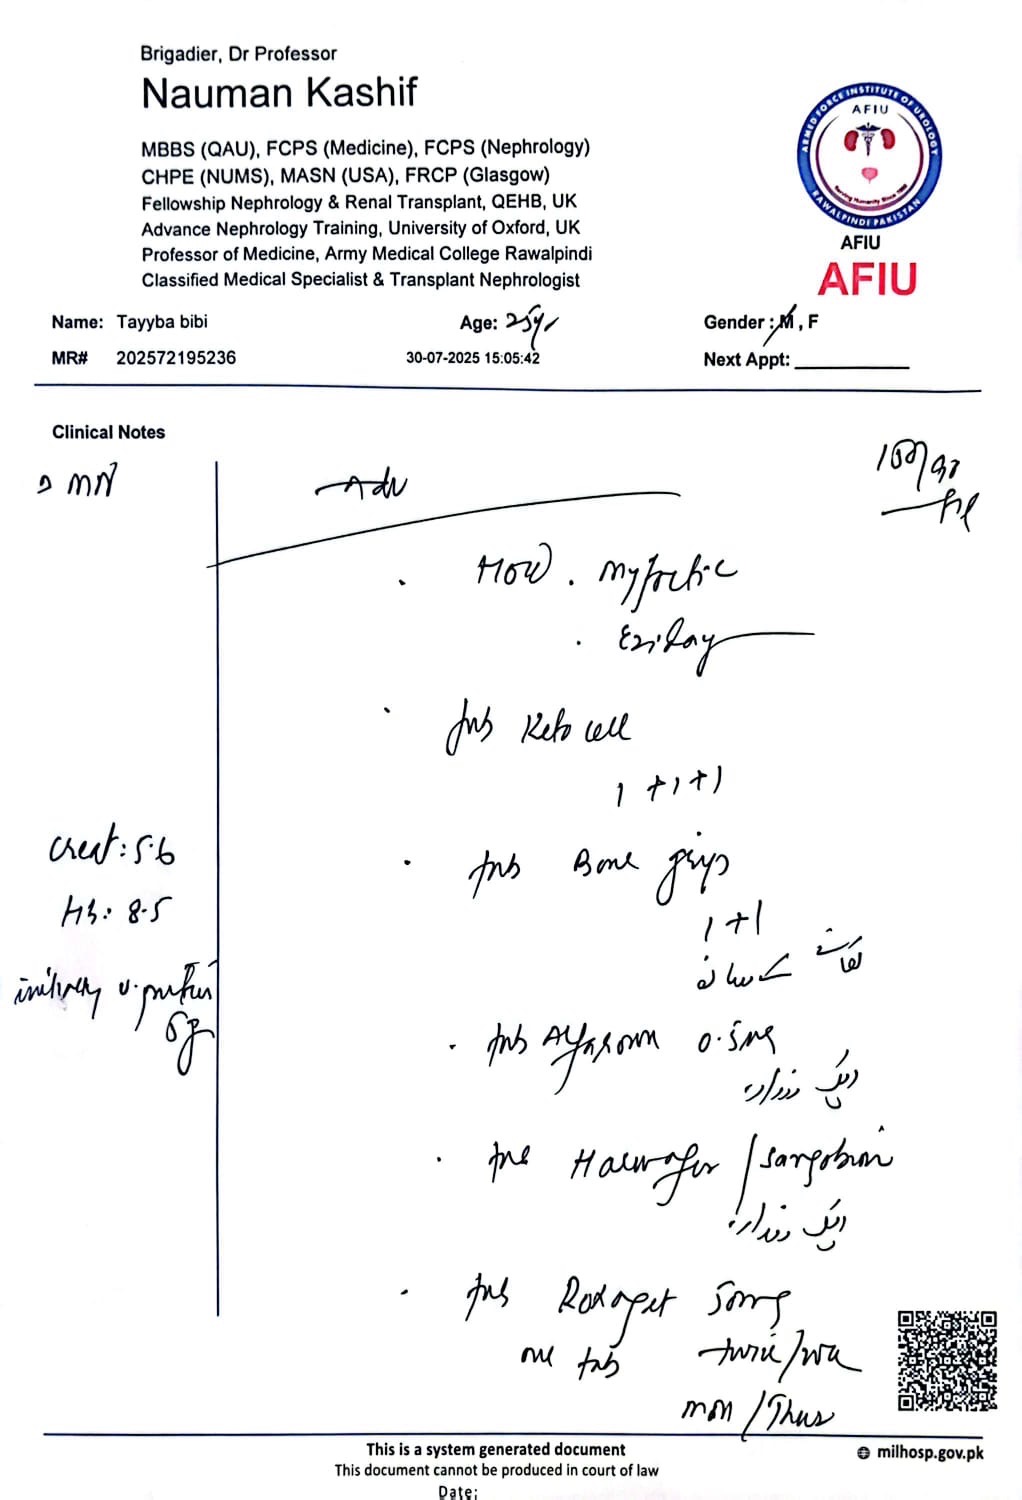 Brigadier, Dr Professor
Nauman Kashif
MBBS (QAU), FCPS (Medicine), FCPS (Nephrology)
CHPE (NUMS), MASN (USA), FRCP (Glasgow)
Fellowship Nephrology & Renal Transplant, QEHB, UK
Advance Nephrology Training, University of Oxford, UK
Professor of Medicine, Army Medical College Rawalpindi
Classified Medical Specialist & Transplant Nephrologist
ARMED FORCE INSTITUTE OF UROLOGY
AFIU
Serving Humanity Since
RAWALPINDI PAKISTAN
AFIU
AFIU
Name: Tayyba bibi Age: 25yr Gender : M , F
MR# 202572195236 30-07-2025 15:05:42 Next Appt:
Clinical Notes
MN
Adv
Hold . Myfortic
. Eziday
Tab Keto cell
1 +1+1
Creat: 5.6
Tab Bone
1+1
Hb: 8.5
کھانے کے ساتھ
initially u. protein
6g
Tab 0.5mg
ایک روزانہ
Tab / Sangobion
ایک روزانہ
Tab 50mg
one tab twice/wk
Mon/Thus
This is a system generated document
This document cannot be produced in court of law
milhosp.gov.pk
Date: